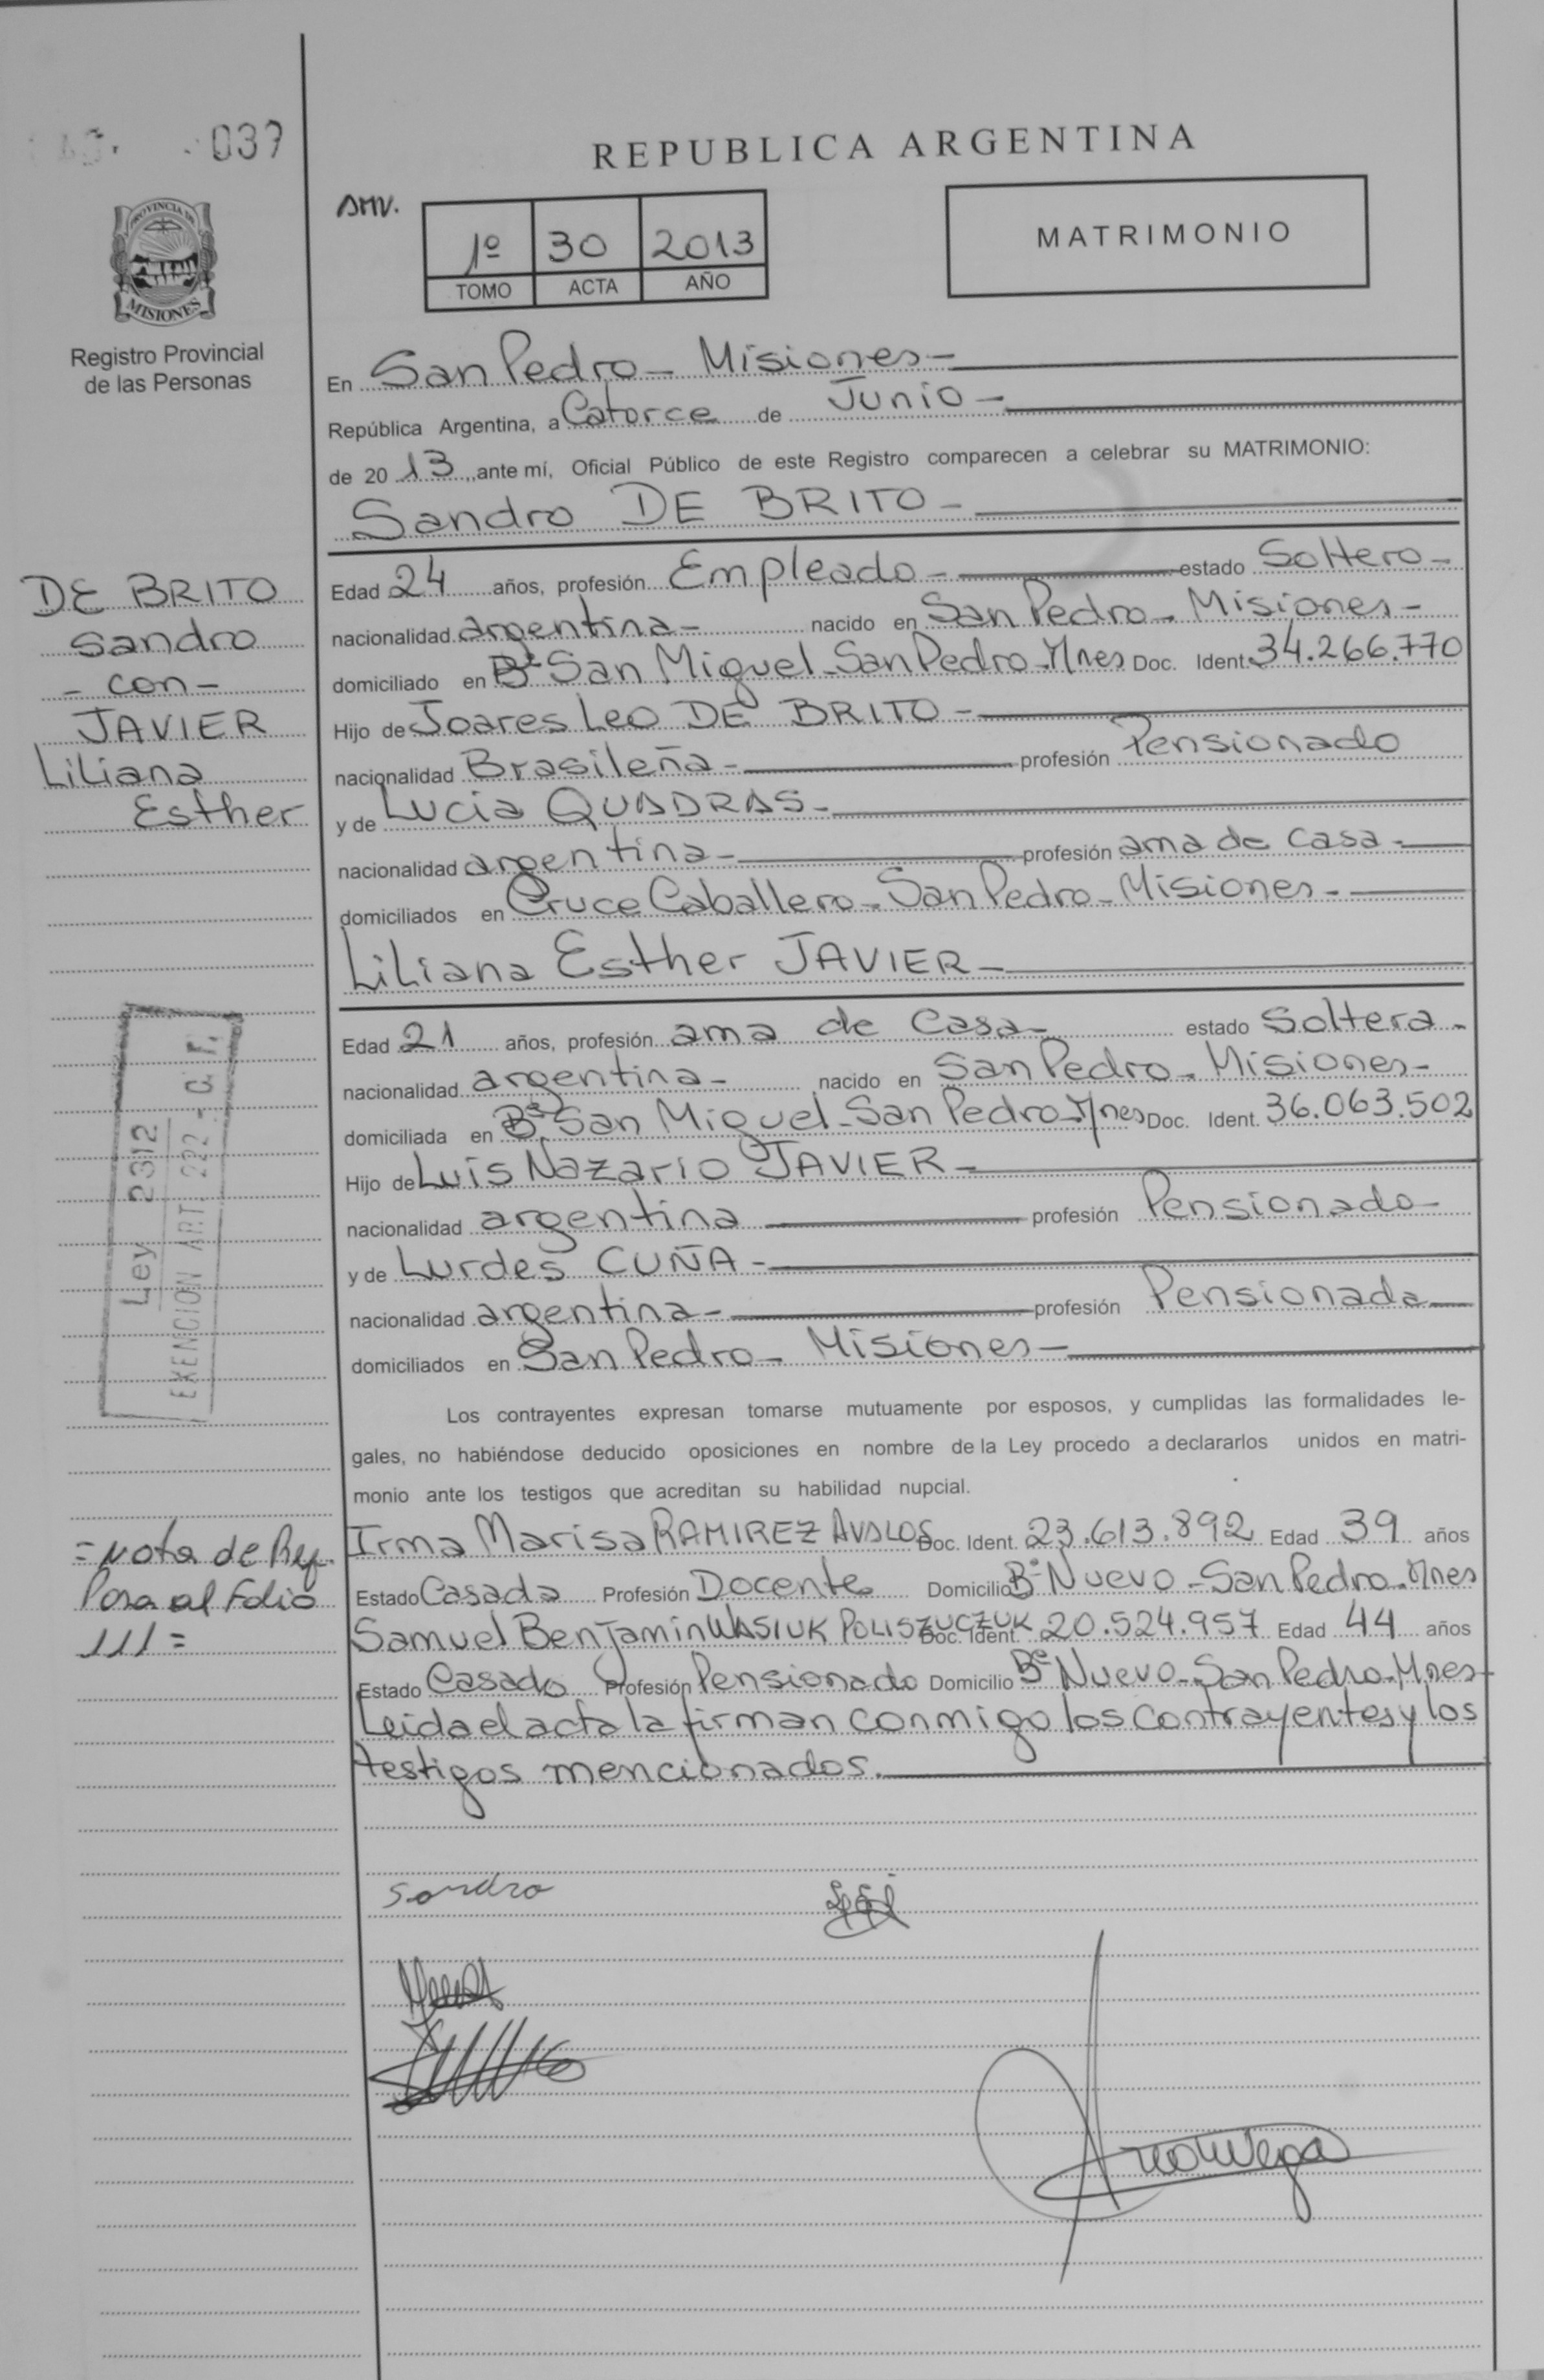 037
REPUBLICA ARGENTINA
AMV.
1º 30 2013
TOMO ACTA AÑO
MATRIMONIO
PROVINCIA DE
MISIONES
Registro Provincial
de las Personas
En San Pedro - Misiones -
República Argentina, a Catorce de Junio -
de 20 13 ante mí, Oficial Público de este Registro comparecen a celebrar su MATRIMONIO:
Sandro DE BRITO -
DE BRITO
Sandro
- con -
JAVIER
Liliana
Esther
Edad 24 años, profesión Empleado - estado Soltero -
nacionalidad argentina - nacido en San Pedro - Misiones -
domiciliado en Bº San Miguel - San Pedro - Mnes Doc. Ident. 34.266.770
Hijo de Joares Leo DE BRITO -
nacionalidad Brasileña - profesión Pensionado
y de Lucia QUADRAS -
nacionalidad argentina - profesión ama de casa -
domiciliados en Cruce Caballero - San Pedro - Misiones -
Liliana Esther JAVIER -
Edad 21 años, profesión ama de Casa - estado Soltera -
nacionalidad argentina - nacido en San Pedro - Misiones -
domiciliada en Bº San Miguel - San Pedro - Mnes Doc. Ident. 36.063.502
Hijo de Luis Nazario JAVIER -
nacionalidad argentina profesión Pensionado -
y de Lurdes CUÑA -
nacionalidad argentina - profesión Pensionada
domiciliados en San Pedro - Misiones -
Ley 2312
EXENCION ART. 222 -
Los contrayentes expresan tomarse mutuamente por esposos, y cumplidas las formalidades le-
gales, no habiéndose deducido oposiciones en nombre de la Ley procedo a declararlos unidos en matri-
monio ante los testigos que acreditan su habilidad nupcial.
= Nota de Ref.
Pasa al Folio
111 =
Irma Marisa RAMIREZ AVALOS Doc. Ident. 23.613.892 Edad 39 años
Estado Casada Profesión Docente Domicilio Bº Nuevo - San Pedro - Mnes
Samuel Benjamin WASIUK POLISZUCZUK Doc. Ident. 20.524.957 Edad 44 años
Estado Casado Profesión Pensionado Domicilio Bº Nuevo - San Pedro - Mnes -
Leida el acta la firman conmigo los contrayentes y los
testigos mencionados.
Sandro